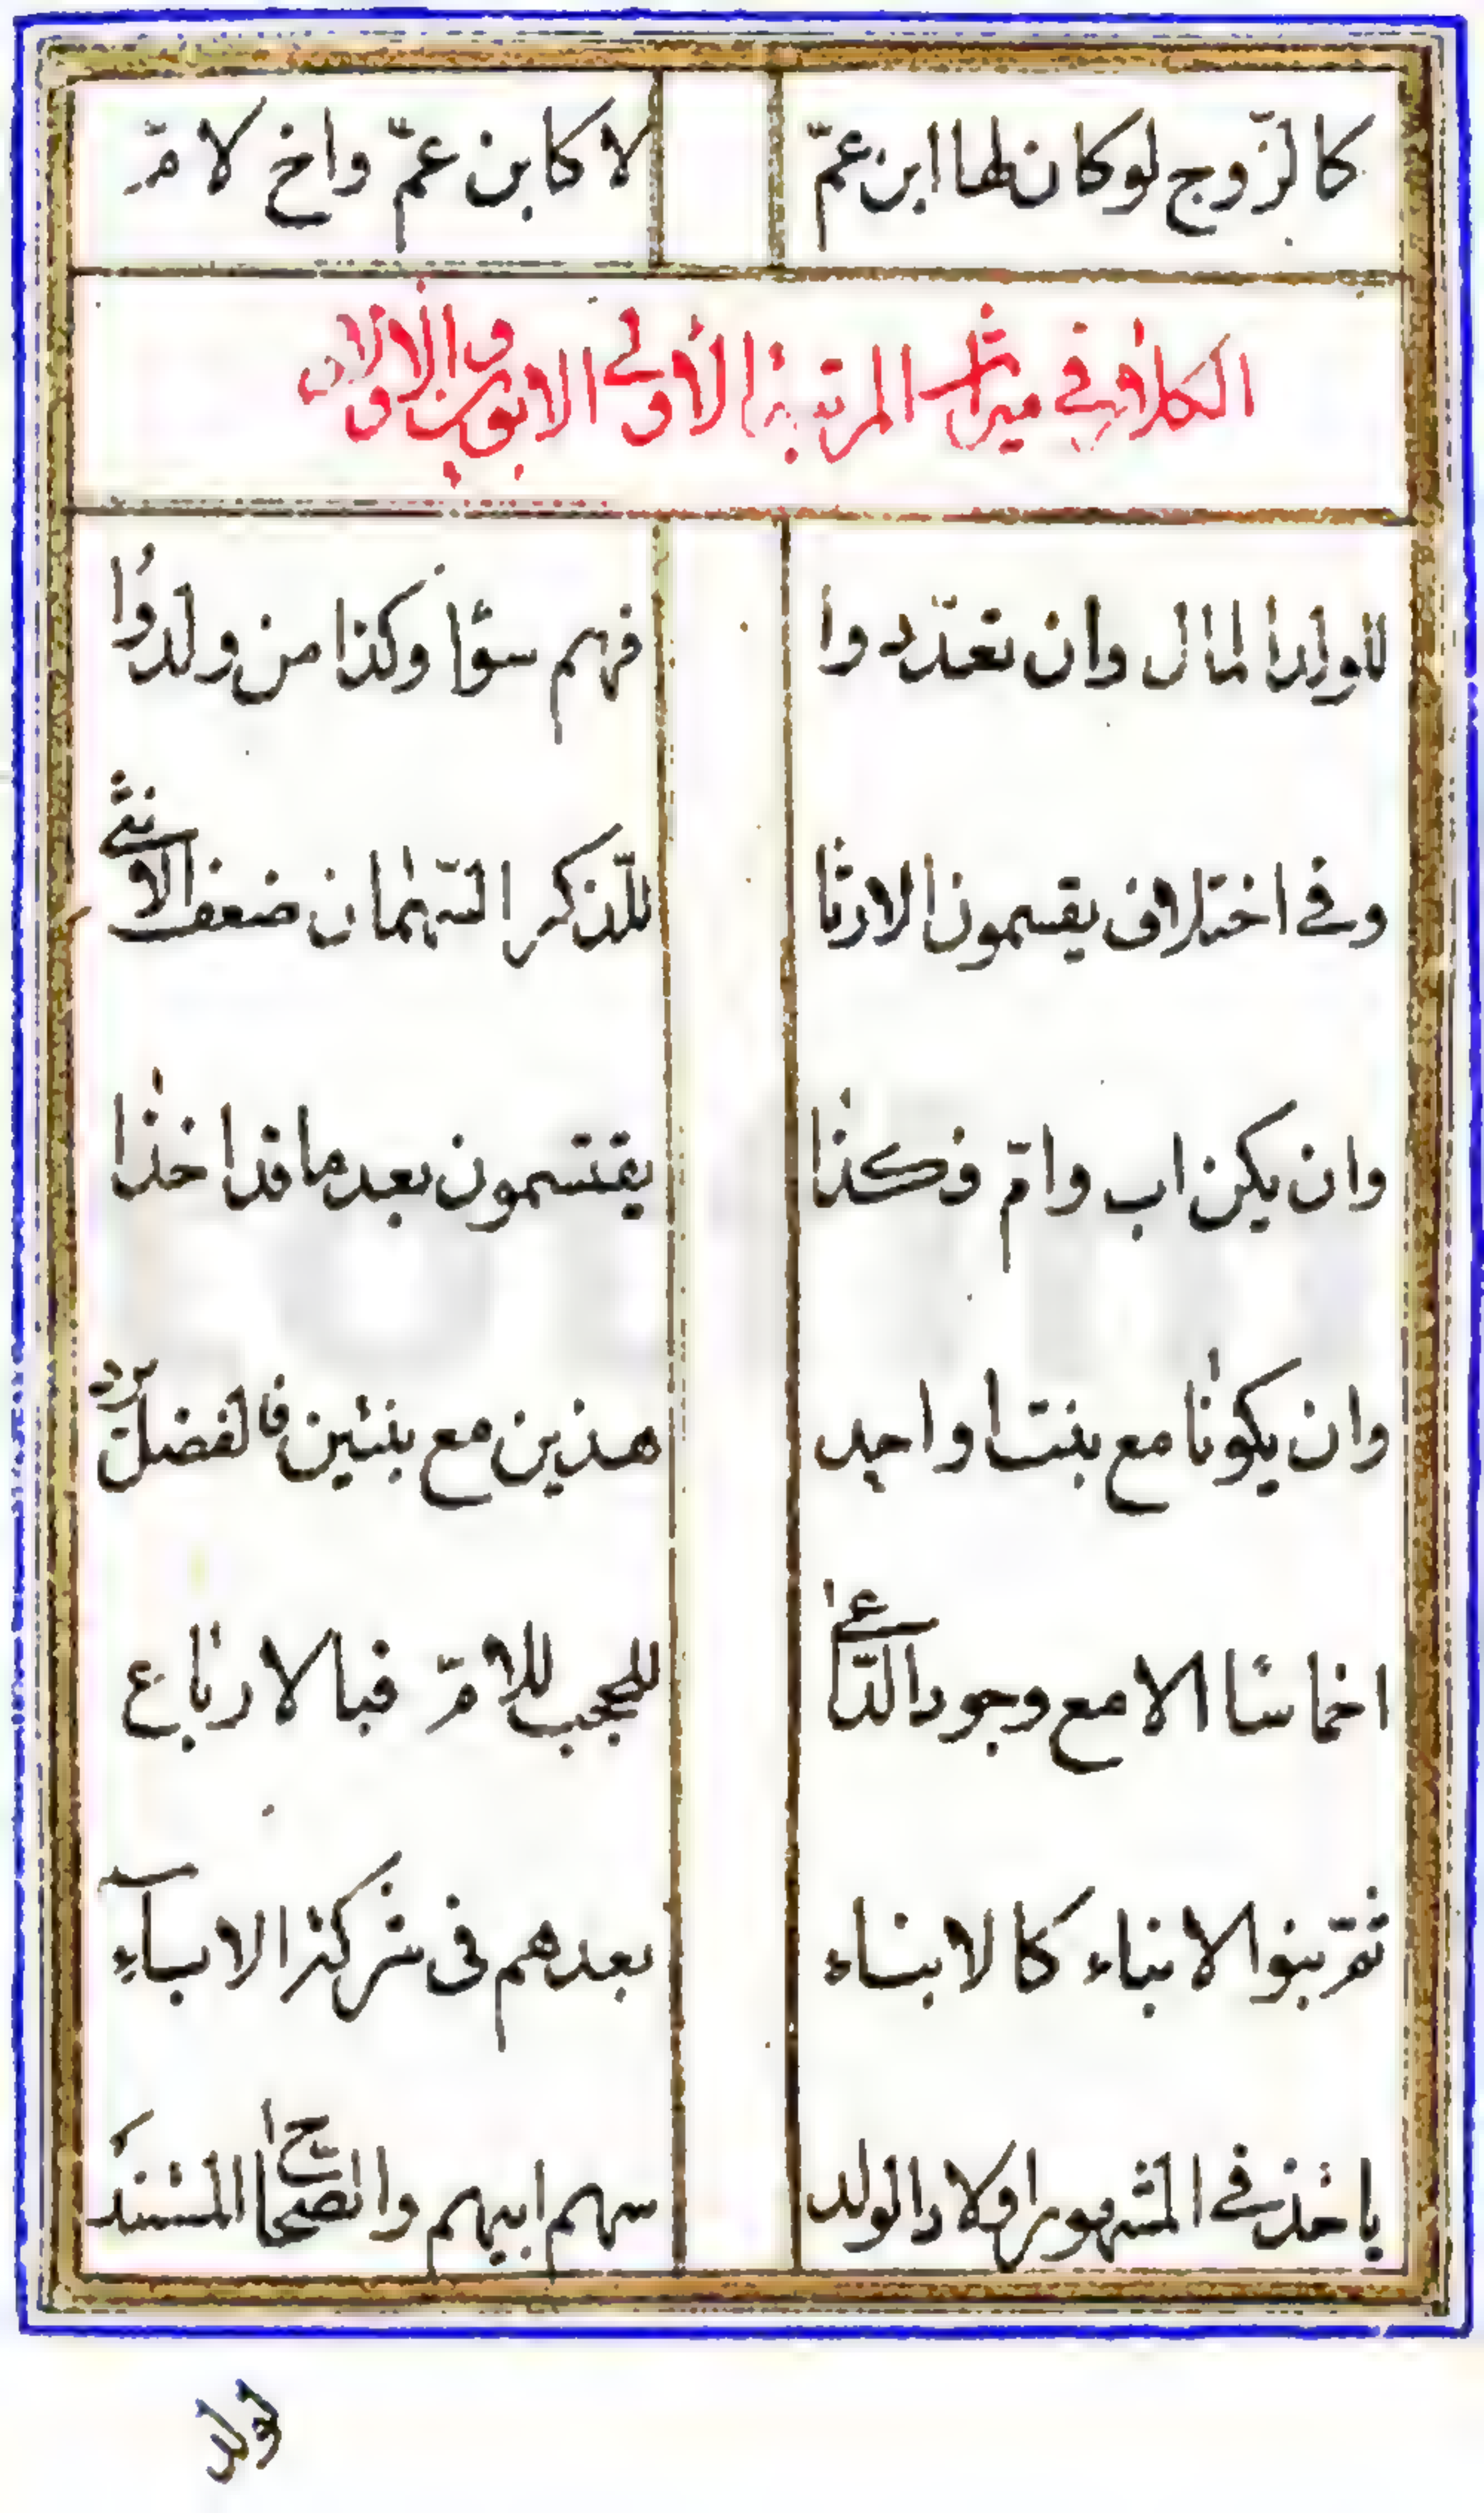 كالزّوج لو كان لها ابن عمّ لا كابن عمّ واخ لامّ
الكلام في ميراث المرتبة الأولى الابوين والاولاد
للولد المال وان تعدّدوا فهم سوٰا وكذا من ولدوا
وفي اختلاف يقسمون الارثا للذّكر السّهمان ضعف الانثى
وان يكن اب وامّ فكذا يقتسمون بعد ما قد اخذا
وان يكونا مع بنت او احد هذين مع بنتين فالفضل يردّ
اخماسا الا مع وجود الدّاعي للحجب للامّ فبالارباع
ثمّ بنوا الابناء كالابناء بعدهم في شركة الابآء
ياخذ في المشهور اولاد الولد سهم ابيهم والصّحاح المستند
لولد